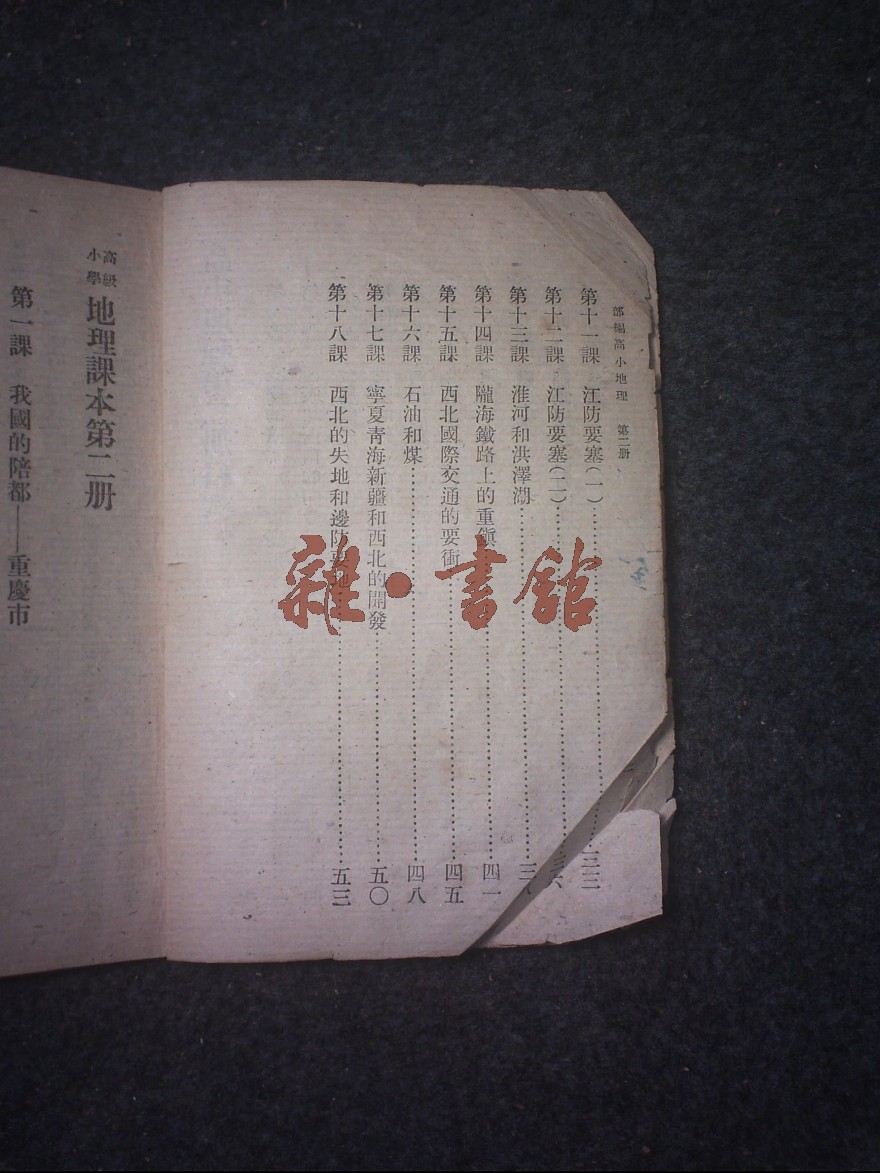 部編高小地理　第二册
第十一課　江防要塞(一)……三三
第十二課　江防要塞(二)……三六
第十三課　淮河和洪澤湖……三
第十四課　隴海鐵路上的重鎭……四一
第十五課　西北國際交通的要衝……四五
第十六課　石油和煤……四八
第十七課　寧夏靑海新疆和西北的開發……五〇
第十八課　西北的失地和邊防要地……五三
高級小學　地理課本第二册
第一課　我國的陪都——重慶市
雜·書館